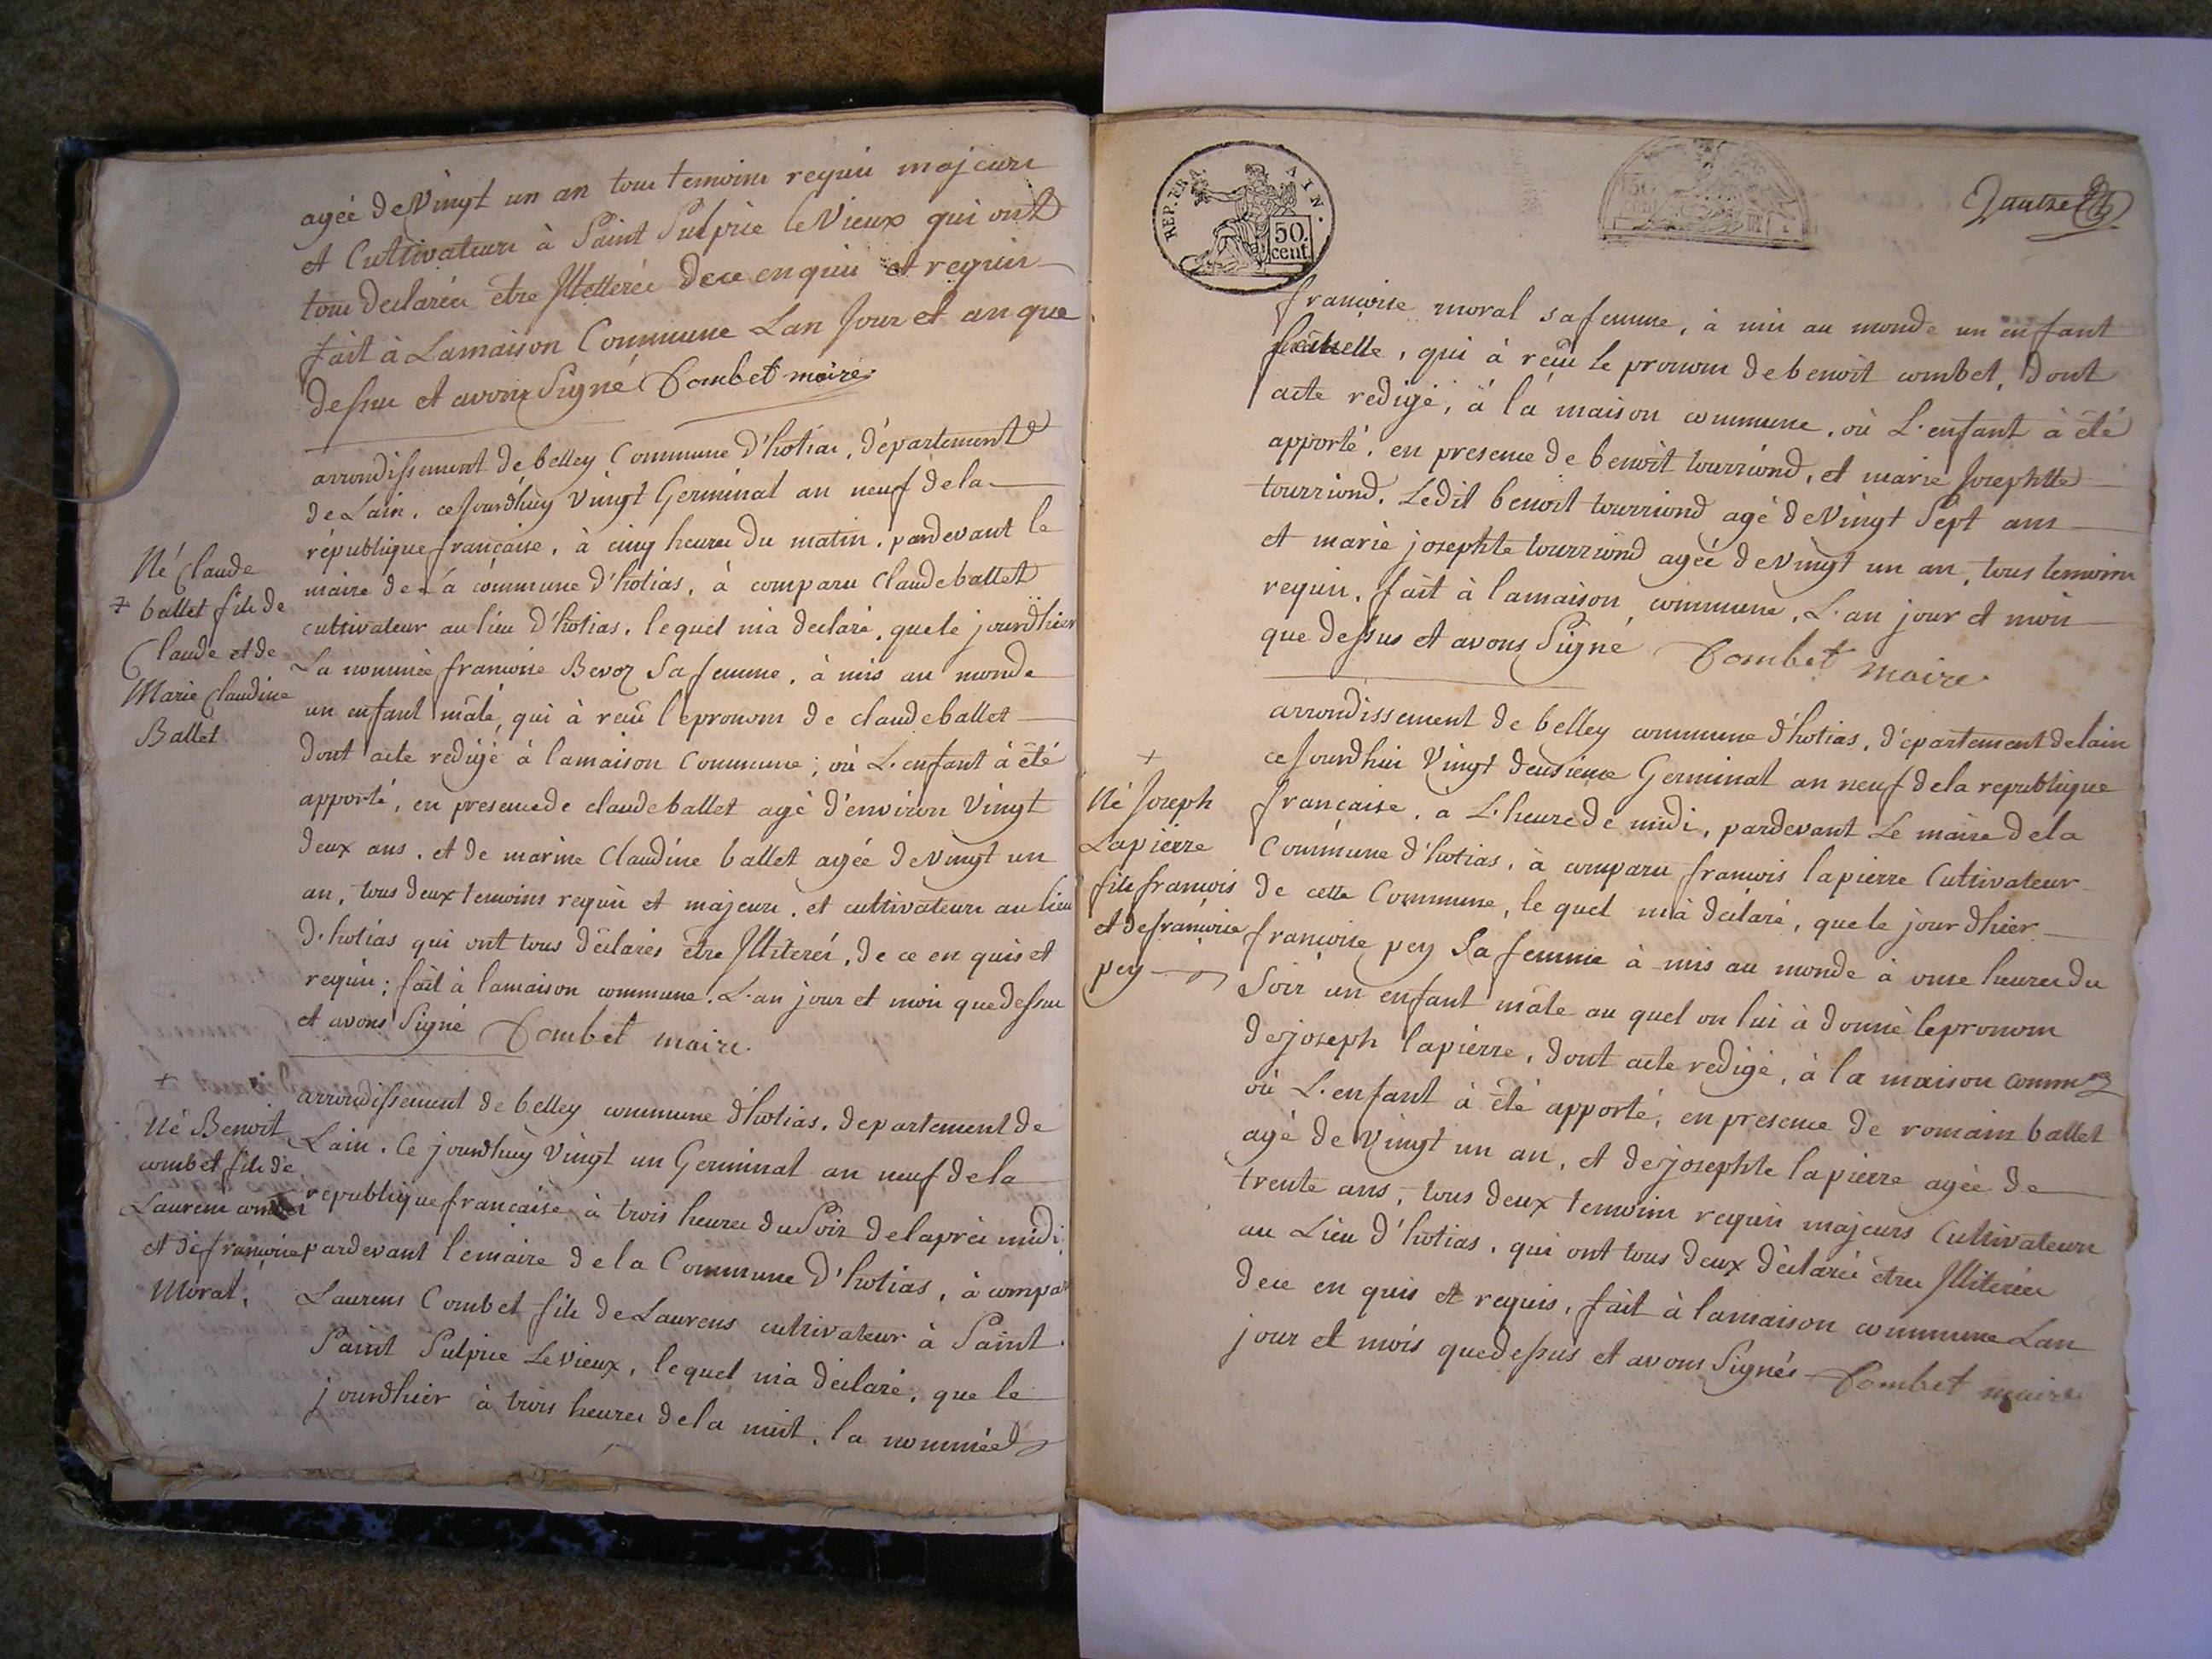 agéé de Vingt un an tous temoins requis majeurs
et Cultivateurs à Saint Sulpice le Vieux qui ont
tous declarés être Illetterés de ce enquis et requis
fait à Lamaison Commune Lan Jour et an que
dessus et avons Signé Combet maire.
arrondissement de belley Commune d'hotias, département
de Lain, ce Jourdhuy Vingt Germinal an neuf de la
république française, à cinq heures du matin, pardevant le
maire de La commune d'hotias, à comparu Claude ballet
cultivateur au lieu d'hotias, lequel m'a declaré, que le jourdhier
La nommée francoise Bevoz Sa femme, à mis au monde
un enfant mâle, qui à reçu le pronom de claude ballet
dont acte redigé à lamaison Commune, où L'enfant à été
apporté, en presence de claude ballet agé d'environ Vingt
deux ans, et de marine Claudine ballet agée de Vingt un
an, tous deux temoins requis et majeurs, et cultivateurs au lieu
d'hotias qui ont tous déclarés être Illiterés, de ce en quis et
requis; fait à lamaison commune. L'an jour et mois que dessus
et avons Signé Combet maire.
Né Claude
ballet fils de
Claude et de
Marie Claudine
Ballet
arrondissement de belley commune d'hotias, departement de
Lain. Ce jourdhuy Vingt un Germinal an neuf de la
republique francaise à trois heures du Soir de laprès midi,
pardevant lemaire de la Commune d'hotias, à compar
Laurens Combet fils de Laurens cultivateur à Saint
Saint Sulpice Le vieux, lequel m'a déclaré, que le
jourdhier à trois heures de la nuit, la nommée
Né Benoit
combet fils de
Laurens combet
et de francoise
Moral.
50.
cent.
REP. FRA.
AIN.
françoise moral sa femme, à mis au monde un enfant
femelle, qui à reçu le pronom de benoît combet, dont
acte redigé, à la maison commune, où L'enfant à été
apporté, en presence de benoît tourriond, et marie Josephtte
tourriond. Ledit benoit tourriond agé de Vingt Sept ans
et marie josephte tourriond agéé de vingt un an, tous temoins
requis, fait à lamaison commune, L'an jour et mois
que dessus et avons Signé Combet maire.
arrondissement de belley commune d'hotias, département de lain
ce Jourdhui Vingt deusieme Germinal an neuf de la republique
française, a L'heure de midi, pardevant Le maire de la
Commune d'hotias, à comparu francois lapierre Cultivateur
de cette Commune, le quel m'à déclaré, que le jour dhier
françoise pey Sa femme à mis au monde à onse heures du
Soir un enfant mâle au quel on lui à donné lepronom
de joseph lapierre, dont acte redigé, à la maison comm
où L'enfant à été apporté, en presence de romain ballet
agé de Vingt un an, et de josephte lapierre agée de
trente ans, tous deux temoins requis majeurs Cultivateurs
au Lieu d'hotias, qui ont tous deux déclarés être Illiterées
de ce en quis et requis, fait à lamaison commune Lan
jour et mois que dessus et avons Signés Combet maire
Né Joseph
Lapierre
fils francois
et de françoise
pey